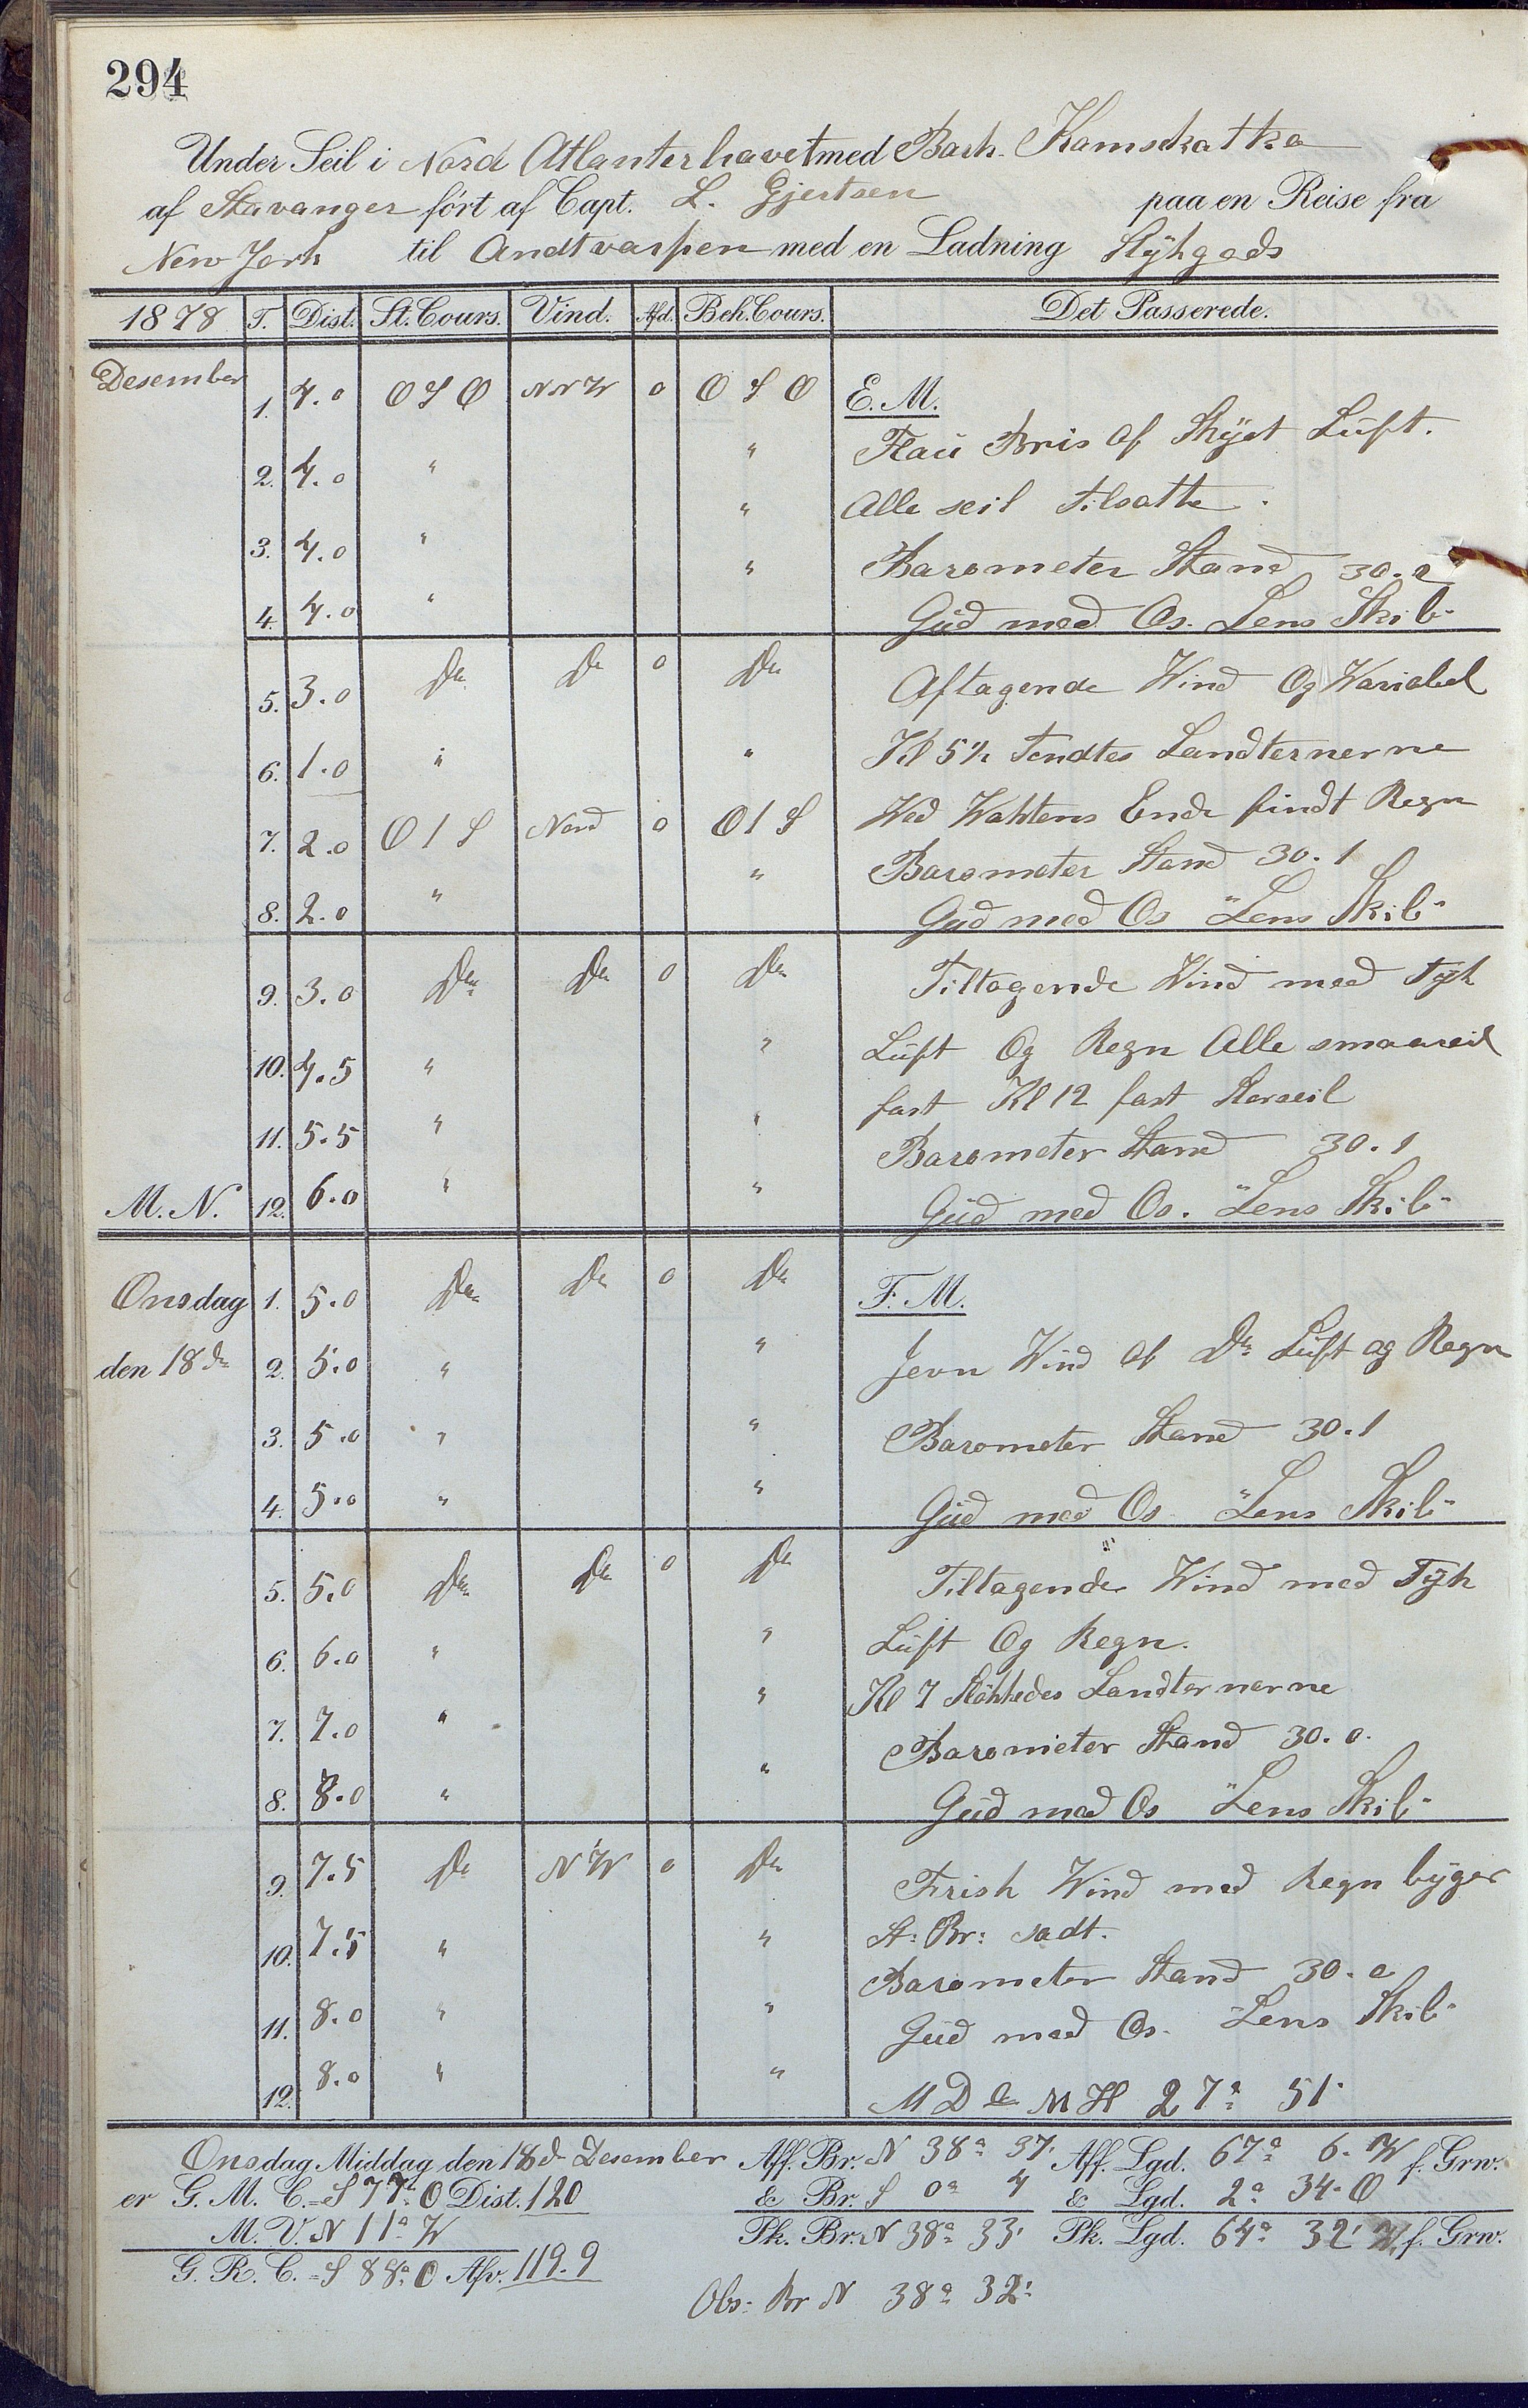 294
Under Seil i Nord Atlanterhavet med Bark. Kamschatka
af Stavanger fört af Capt. L. Gjertsen paa en Reise fra
New York til Andtvarpen med en Ladning Stÿkgods
1878 T. Dist. St. Cours. Vind. Afd. Beh. Cours. Det Passerede.
Desember 1. 4.0 O S O NNW 0 O S O E. M.
2. 4.0 " " Flaü Bris af Skÿet Lüft.
3. 4.0 " " Alle seil tilsatte.
4. 4.0 " " Barometer Stand 30.2
Güd med Os. Lens Skib"
5. 3.0 Do Do 0 Do Aftagende Wind Og Wariabel
6. 1.0 " " Kl 5½ Tendtes Landternerne
7. 2.0 O 1 S Nord 0 O 1 S Wed Waktens Ende findt Regn
8. 2.0 " " Barometer Stand 30.1
Güd med Os "Lens Skib"
9. 3.0 Do Do 0 Do Tiltagende Wind med Tÿk
10. 4.5 " " Lüft Og Regn Alle smaaseil
11. 5.5 " " fast Kl 12 fast Storseil
Barometer Stand 30.1
M. N. 12. 6.0 " " Güd med Os. "Lens Skib"
Onsdag 1. 5.0 Do Do 0 Do F. M.
den 18de 2. 5.0 " " Jevn Wind af Do Lüft og Regn
3. 5.0 " " Barometer Stand 30.1
4. 5.0 " " Güd med Os "Lens Skib"
5. 5.0 Do Do 0 Do Tiltagende Wind med Tÿk
6. 6.0 " " Lüft Og Regn.
7. 7.0 " " Kl 7 Slökkedes Landternerne
Barometer Stand 30.0.
8. 8.0 " " Güd med Os "Lens Skib"
9. 7.5 Do NW 0 Do Frisk Wind med Regn bÿger
10. 7.5 " " St: Br: sadt.
11. 8.0 " " Barometer Stand 30.0
Güd med Os. Lens Skib"
12. 8.0 " " M D MH 27° 51'
Onsdag Middag den 18de Desember Aff. Br. N 38° 37' Aff. Lgd. 67° 6' W f. Grw.
er G. M. C. = S 77° O Dist. 120 & Br. S 0° 4 & Lgd. 2° 34' O
M. V. N 11° W Pk. Br. N 38° 33' Pk. Lgd. 64° 32' W. f. Grw.
G. R. C. = S 88° O Afv. 119.9
Obs: Br N 38° 32'